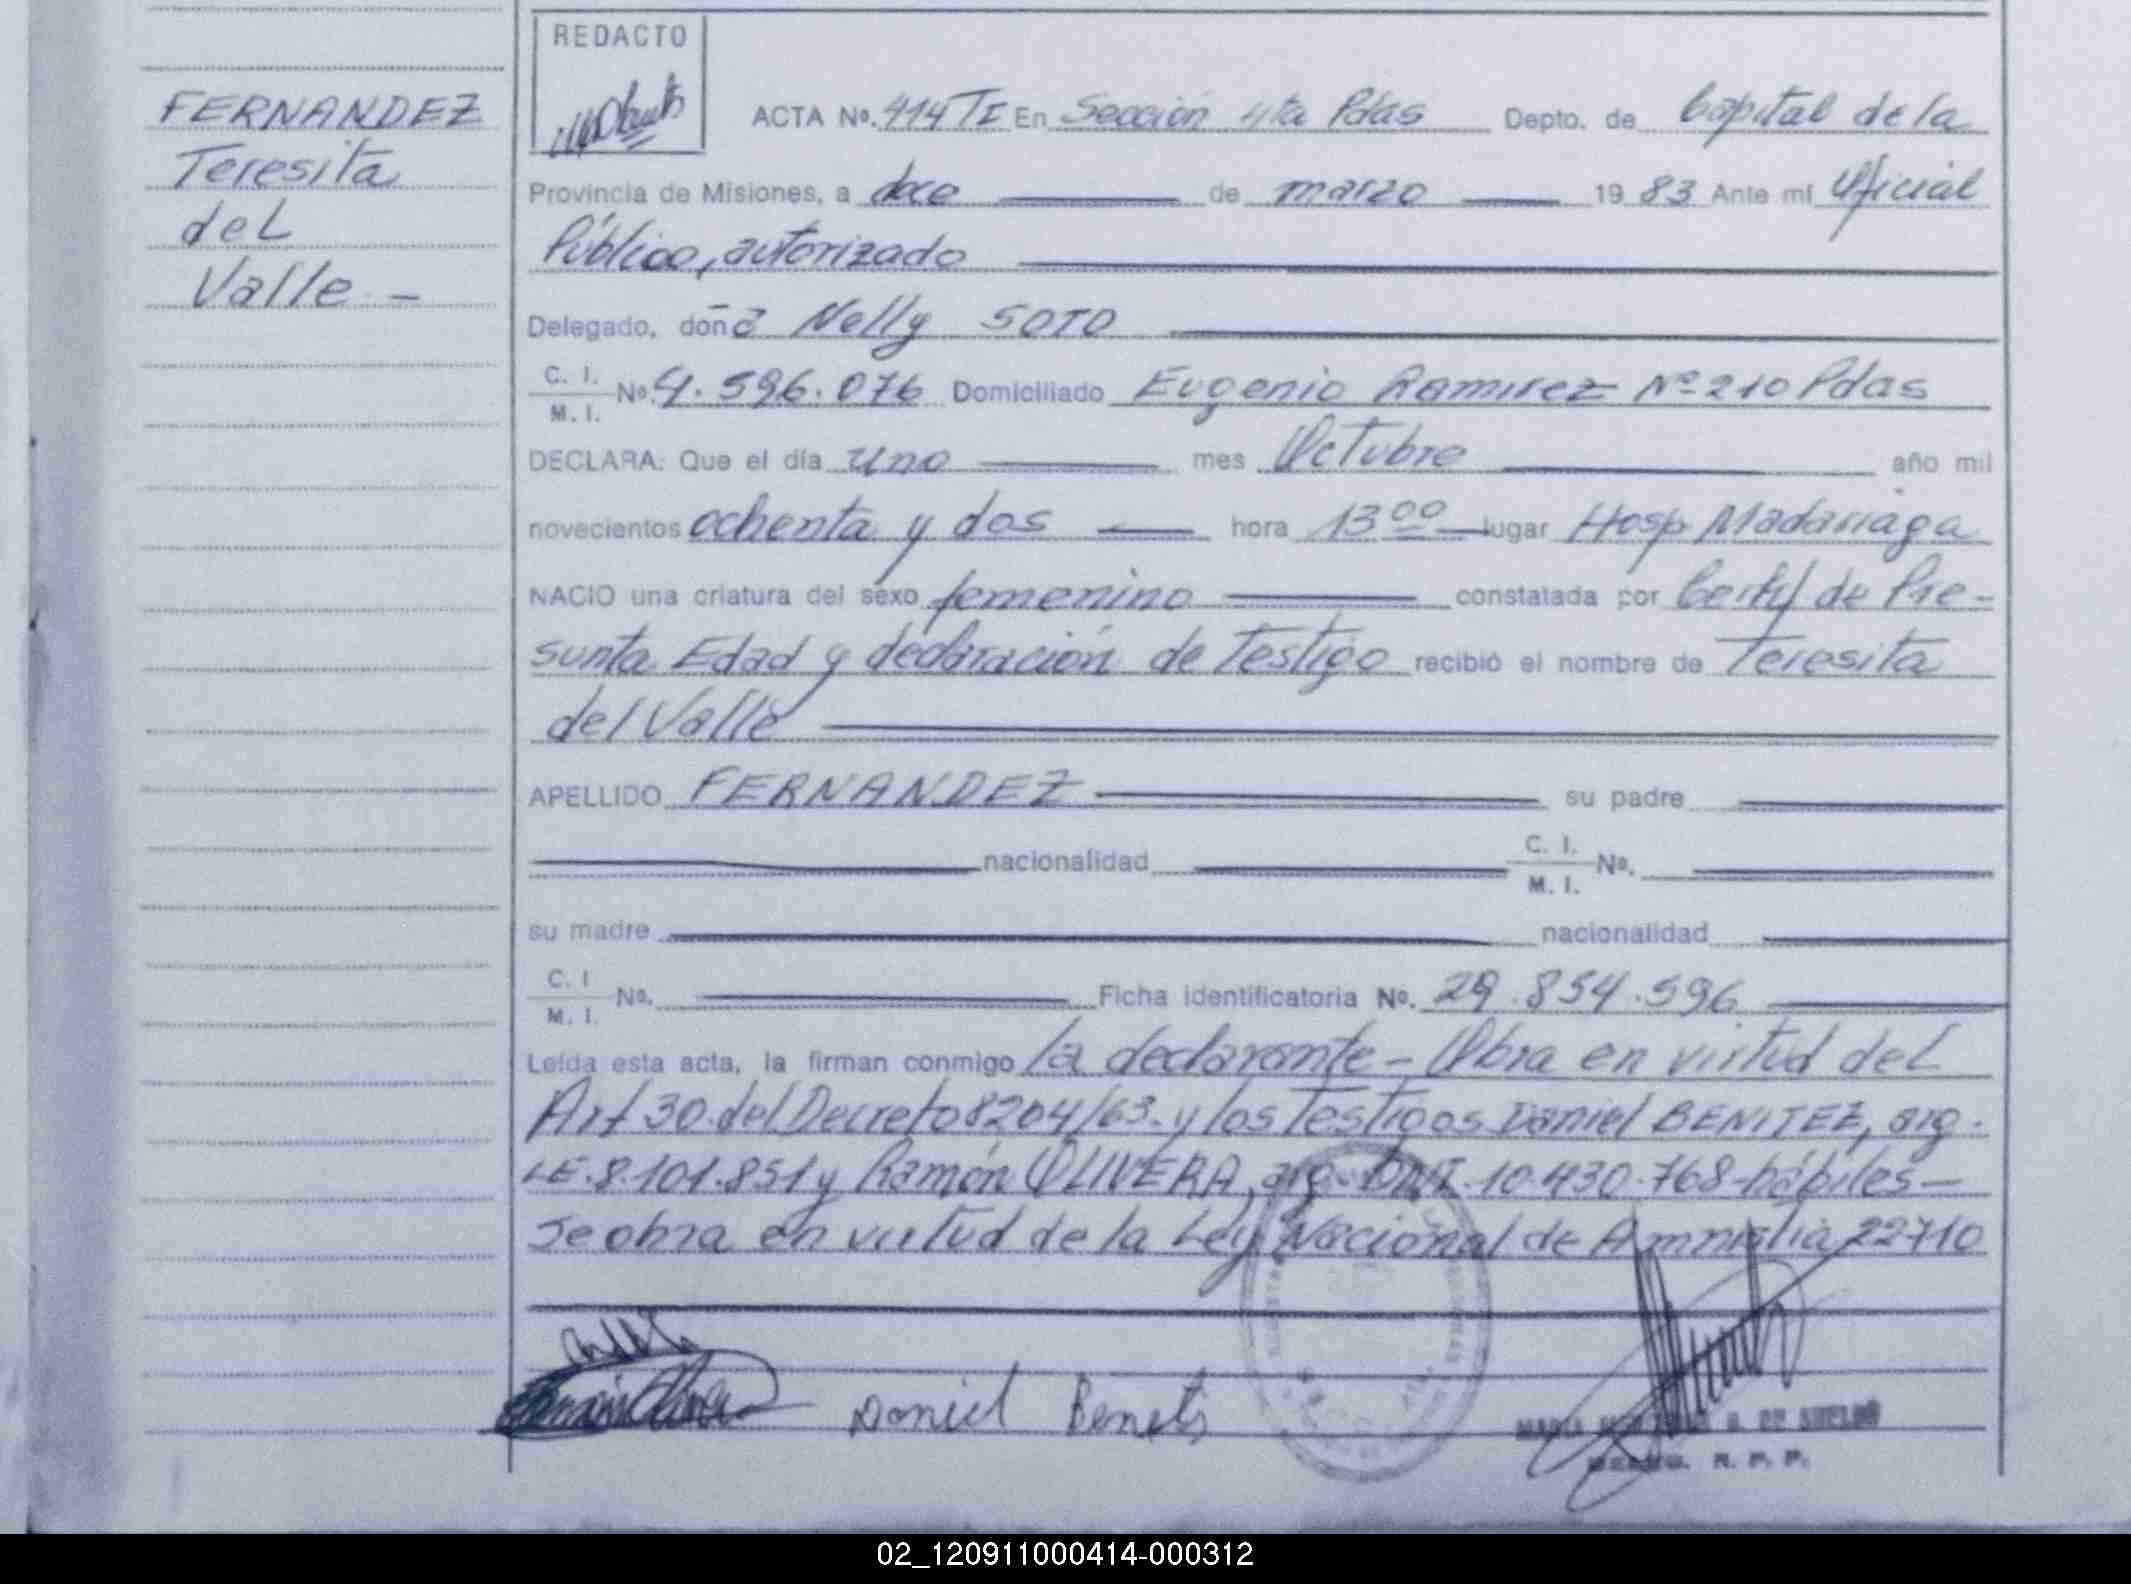 FERNANDEZ
Teresita
del
Valle -
REDACTO
ACTA No. 414 TI En Sección 4ta Pdas Depto. de Capital de la
Provincia de Misiones, a doce de marzo 19 83 Ante mí Oficial
Público, autorizado
Delegado, doña Nelly SOTO
C. I. M. I. No. 4.596.076 Domiciliado Eugenio Ramirez Nº 210 Pdas
DECLARA: Que el día uno mes Octubre año mil
novecientos ochenta y dos hora 13 00 lugar Hosp Madariaga
NACIO una criatura del sexo femenino constatada por Certf de Pre-
sunta Edad y declaración de Testigo recibió el nombre de Teresita
del Valle
APELLIDO FERNANDEZ su padre
nacionalidad C. I. M. I. No.
su madre nacionalidad
C. I M. I. No. Ficha identificatoria No. 29.854.596
Leída esta acta, la firman conmigo la declarante - Obra en virtud del
Art 30 del Decreto 8204/63. y los Testigos Daniel BENITEZ, arg.
LE. 8.101.851 y Ramón OLIVERA, arg. DNI. 10.430.768 - hábiles -
Se obra en virtud de la Ley Nacional de Amnistia 22710
Daniel Benets
R. P. P.
02_120911000414-000312